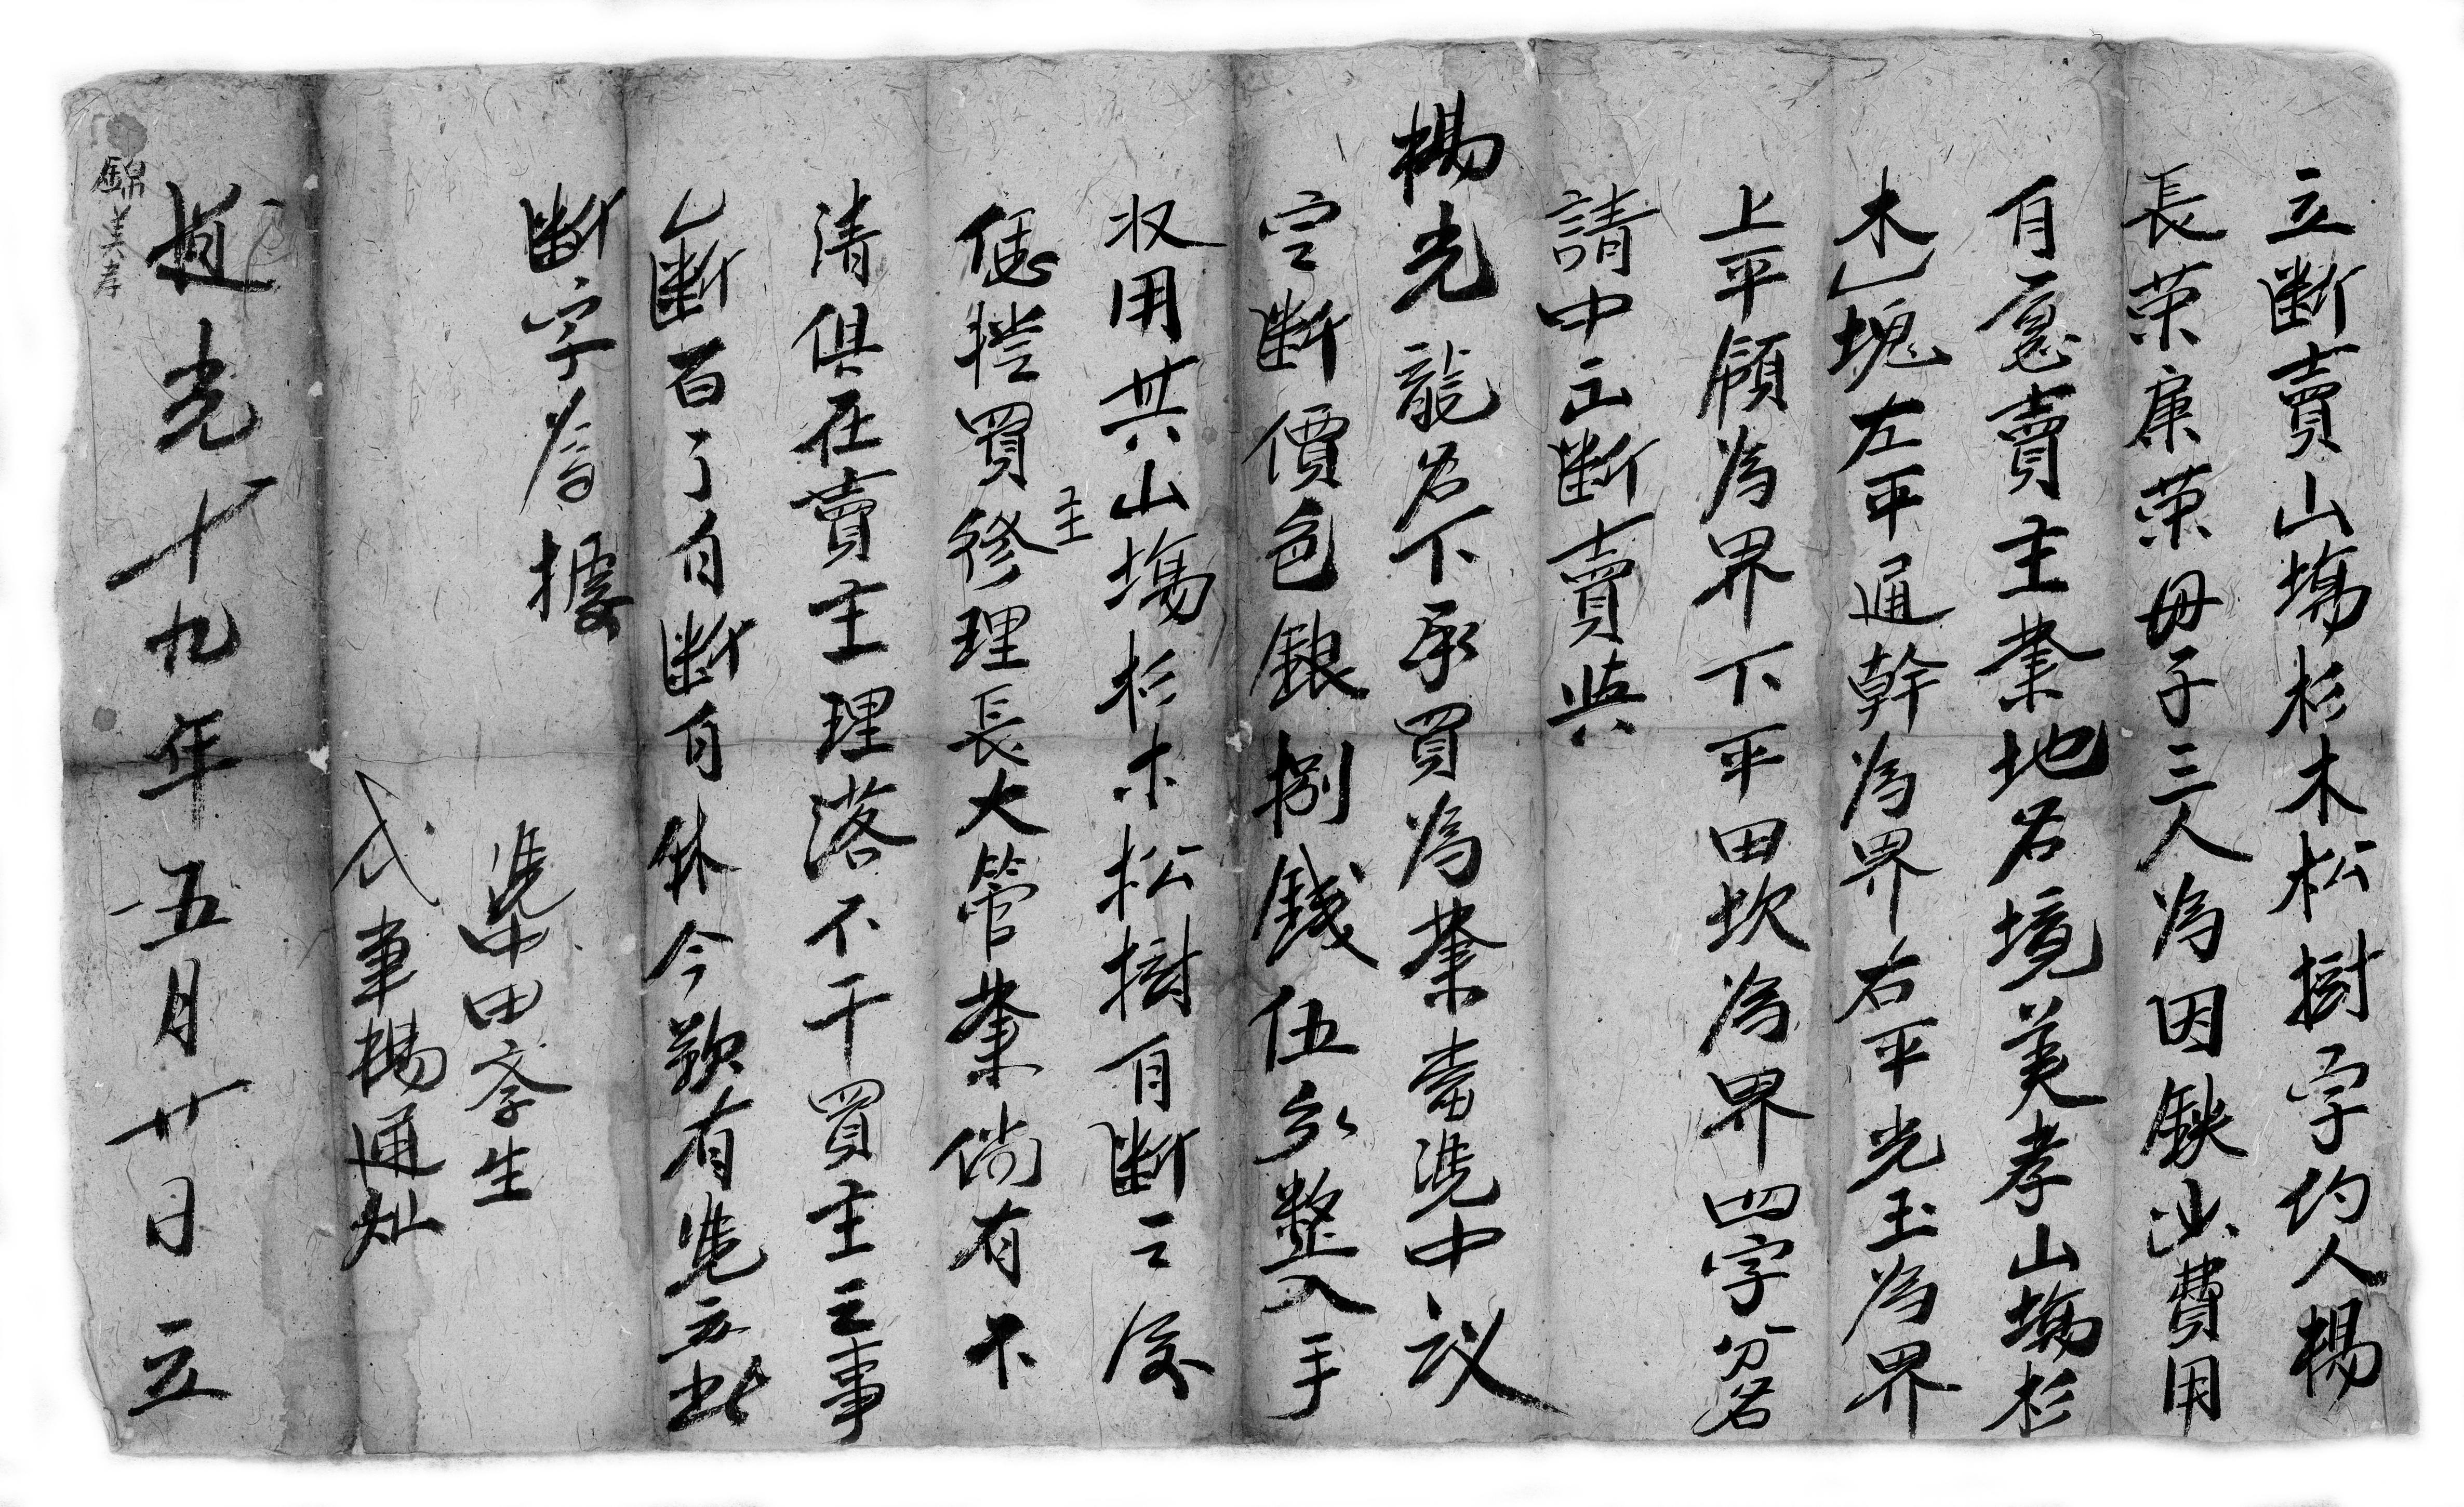 立斷賣山塲杉木松樹字約人楊
長荣康荣母子三人為因缺少費用
自愿賣主業地名境美孝山塲杉
木乙塊左平通幹為界右平光玉為界
上平領為界下平田坎為界四字分名
請中立斷賣與
楊光龍名下承買為業當凴中议
定斷價色銀捌錢伍分整入手
收用其山塲杉木松樹自斷之後
恁從買主修理長大管業倘有不
清俱在賣主理落不干買主之事
乙斷百了自斷自休今欲有凴立此
斷字為據
凴中田孝生
代筆楊通灿
道光十九年五月廿日立
錦美孝